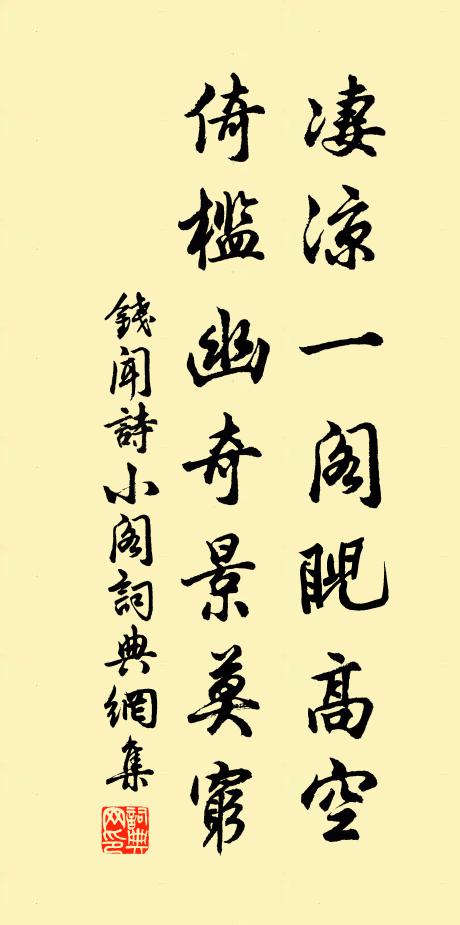 凄涼一阁睨高空
倚檻幽奇景莫窮
錢聞詩小阁詞典網集
詞典网印